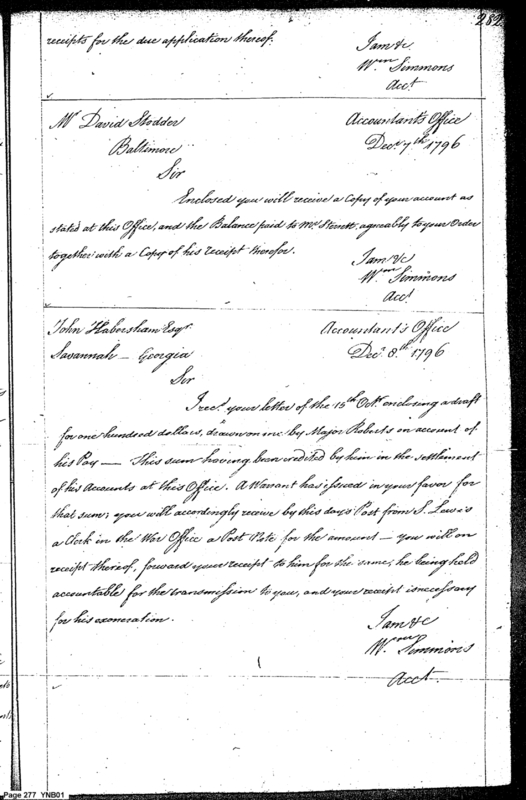 282
receipts for the due application thereof.
I am &c
Wm Simmons
Acct
Mr David Stodder
Accountant's Office
Baltimore
Decr 7th 1796
Sir
Enclosed you will receive a Copy of your account as
stated at this Office, and the Balance paid to Mr Sterrett, agreably to your Order
together with a Copy of his receipt therefor.
I am &c
Wm Simmons
Acct
John Habersham Esqr
Accountant's Office
Savannah - Georgia
Decr 8th 1796
Sir
I recd your letter of the 15th Octr enclosing a draft
for one hundred dollars, drawn on me by Major Roberts on account of
his Pay — This sum having been credited by him in the settlement
of his Accounts at this Office. A Warrant has issued in your favor for
that sum; you will accordingly receive by this days Post from S. Lewis
a Clerk in the War Office a Post Note for the amount — you will on
receipt thereof, forward your receipt to him for the same, he being held
accountable for the transmission to you, and your receipt is necessary
for his exoneration.
I am &c
Wm Simmons
Acct.
Page 277 YNB01